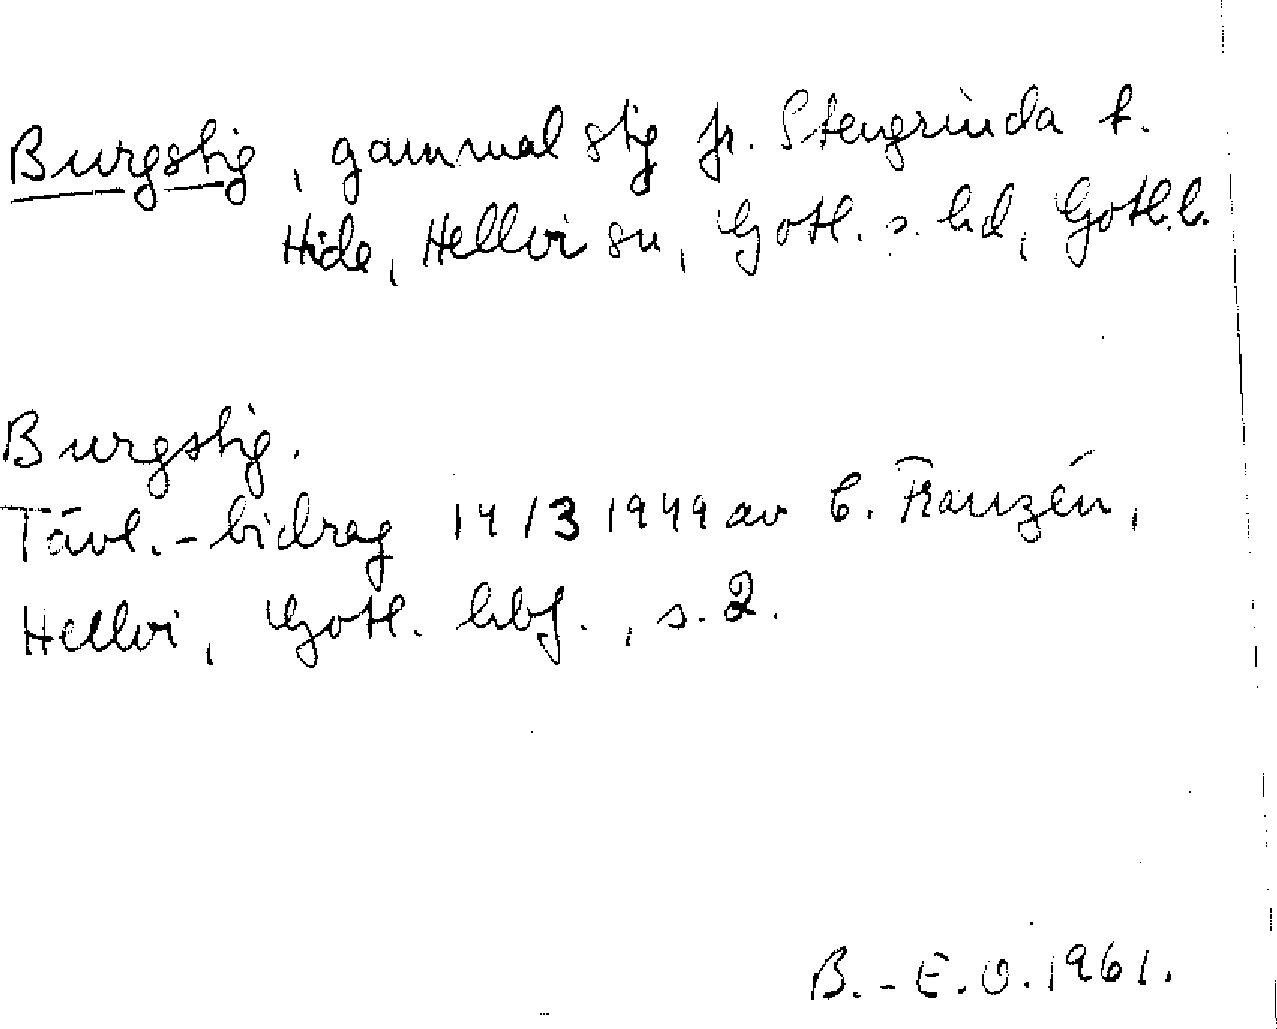 Burgstig, gammal stig fr. Stengrinda t.
Hide, Hellvi sn, Gotl. s. hd, Gotl. l.
Burgstig.
Tävl.-bidrag 14/3 1949 av C. Franzén,
Hellvi, Gotl. hbf., s. 2.
B.-E.O. 1961.